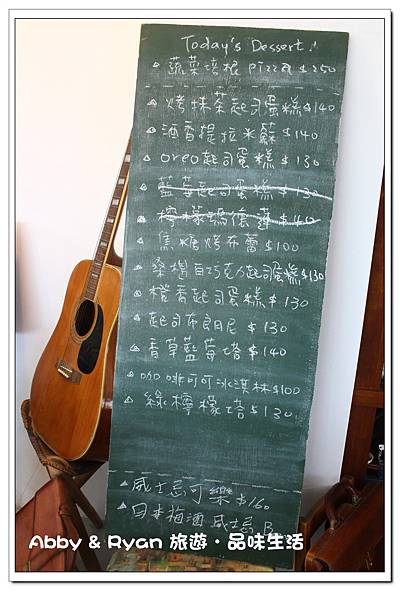 Today's Dessert!
蔬菜培根 pizza $250
烤抹茶起司蛋糕 $140
酒香提拉米蘇 $140
oreo起司蛋糕 $130
藍莓起司蛋糕 $130
檸檬瑪德蓮 $140
焦糖烤布蕾 $100
桑椹白巧克力起司蛋糕 $130
橙香起司蛋糕 $130
起司布朗尼 $130
香草藍莓塔 $140
咖啡可可冰淇林 $100
綠檸檬塔 $130
威士忌可樂 $160
日本梅酒 威士忌
Abby & Ryan 旅遊·品味生活